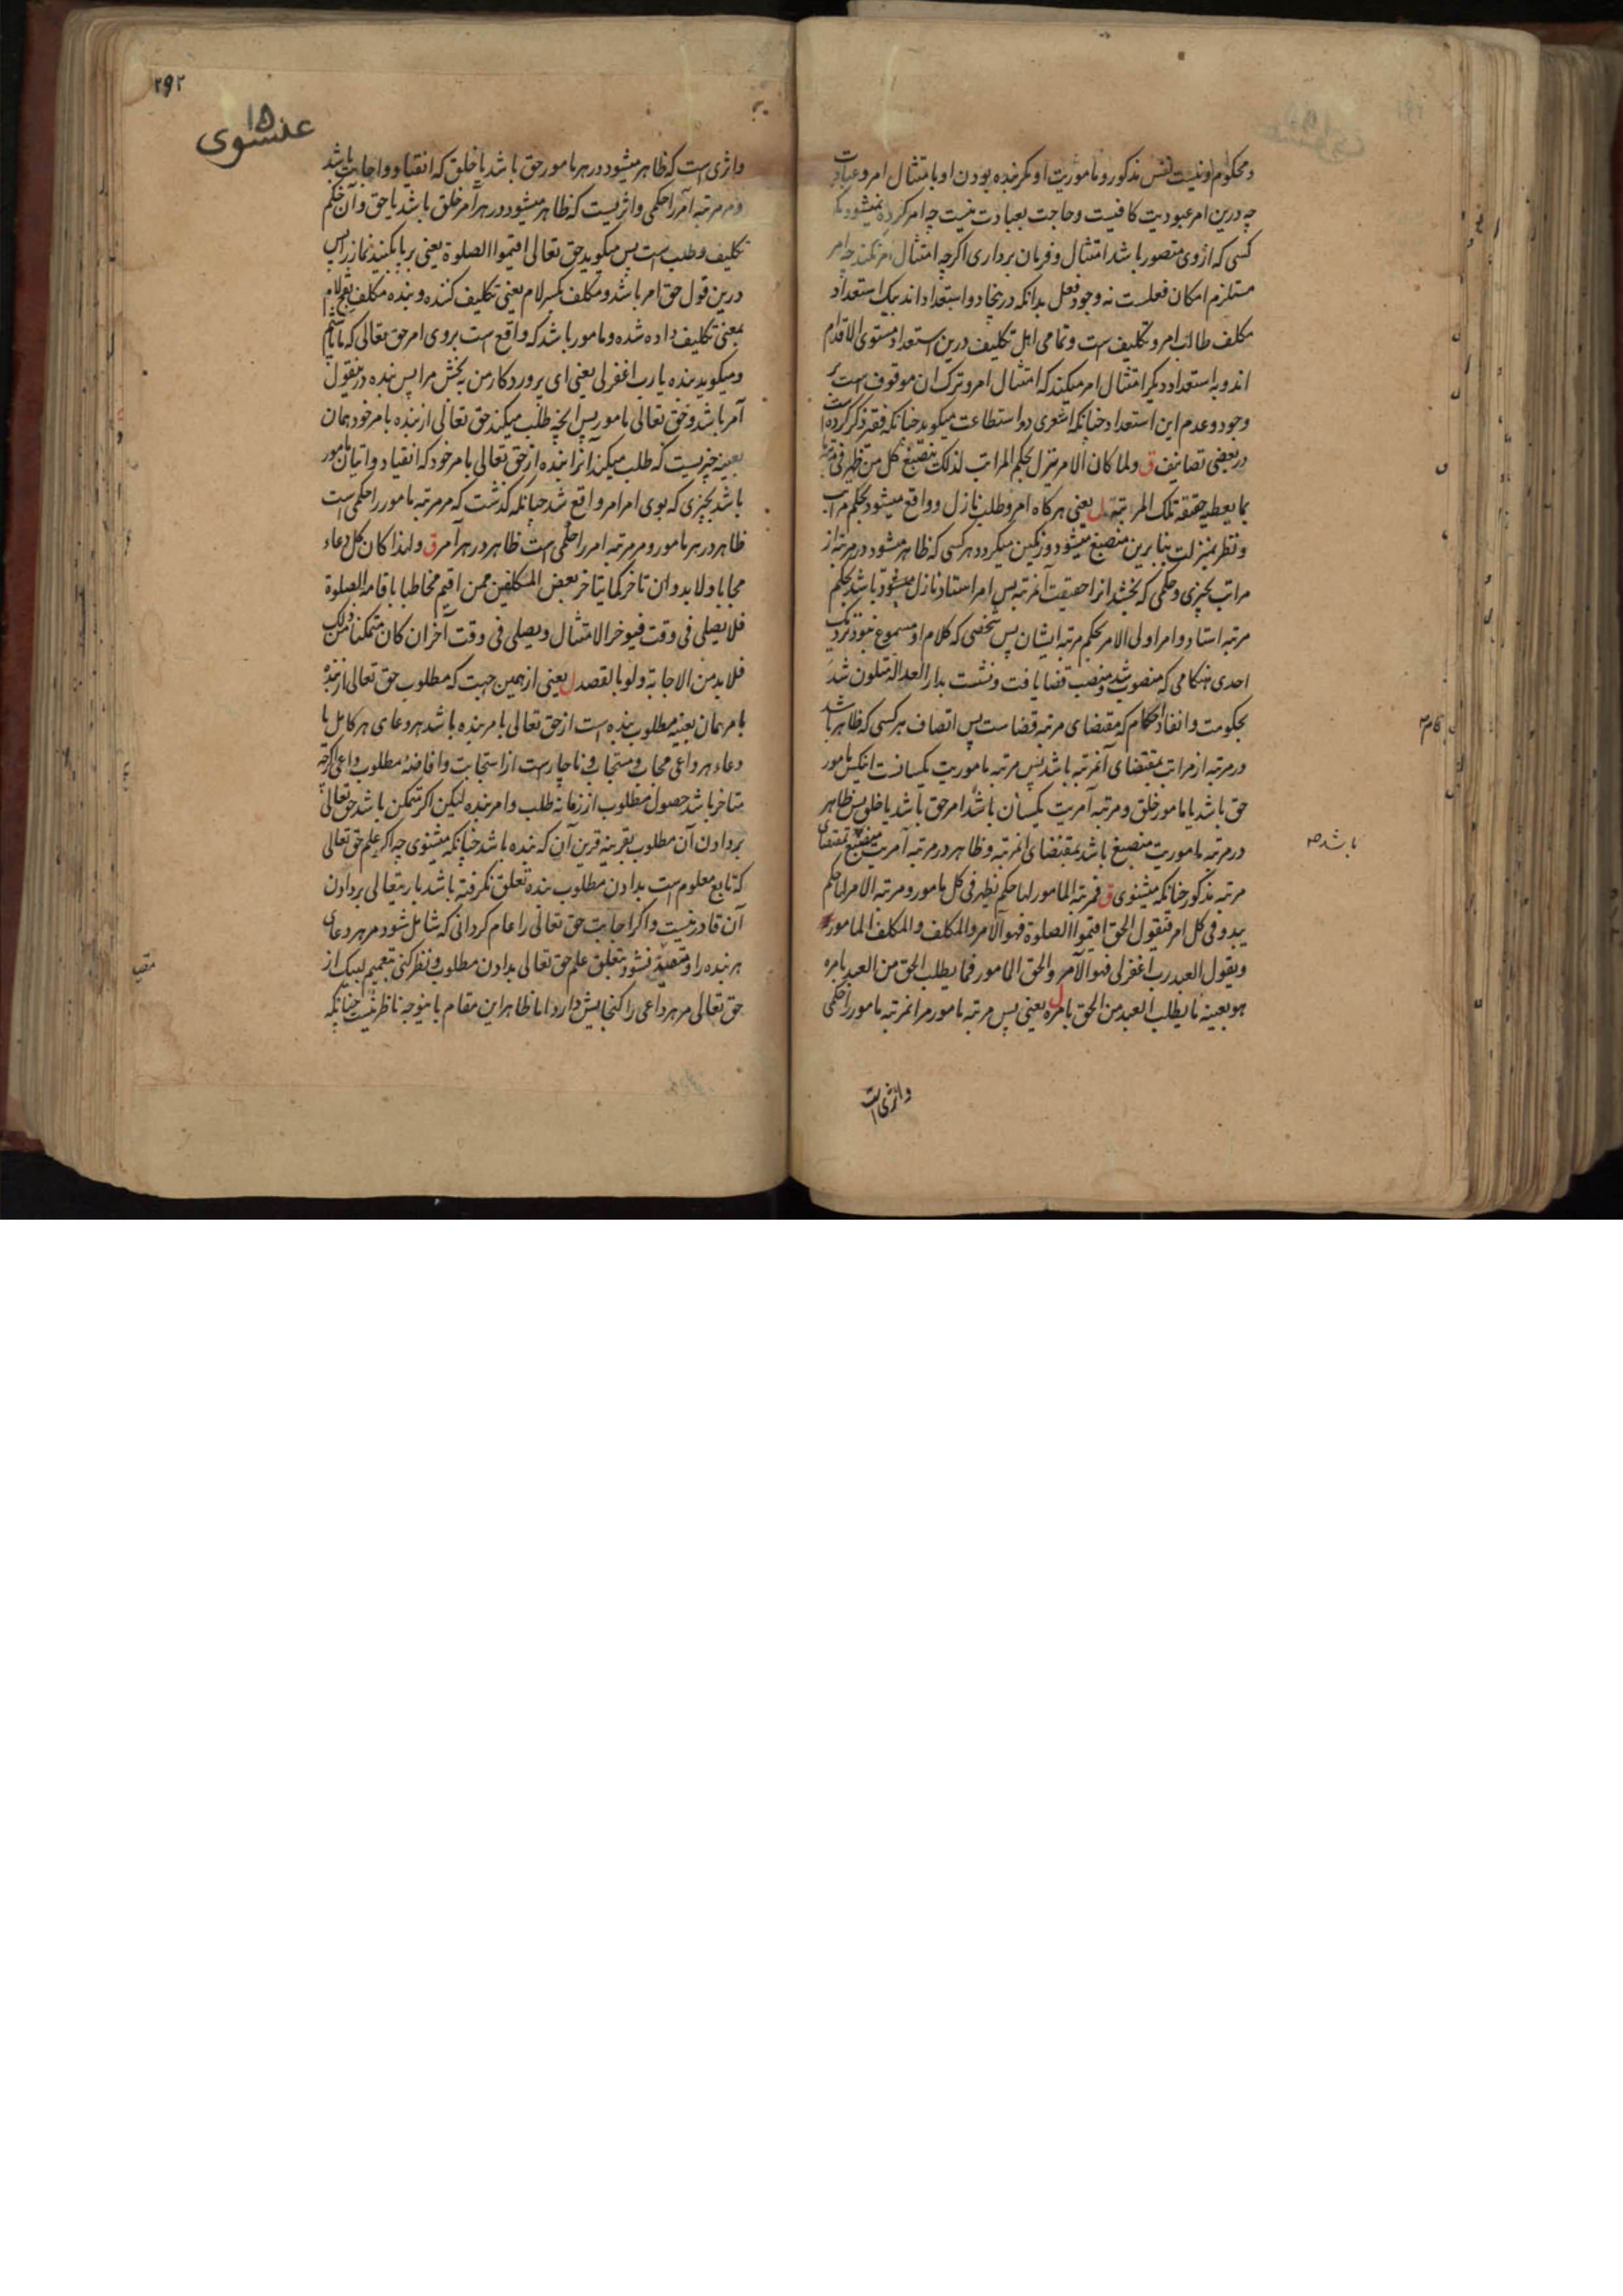 و محکوم او نیست نفس مذکور و ماموریت او مکر بنده بودن او بامتثال امر و عبادت
چه درین امر عبودیت کافیست و حاجت بعبادت نیست چه امر کرده نمیشود مکر
کسی که از وی متصور باشد امتثال و فرمان برداری اکرچه امتثال امر نکند چه امر
مستلزم امکان فعلست نه وجود فعل بدانکه در ینجا دو استعداد اند بیک استعداد
مکلف طالب امر و تکلیف است و تمامی اهل تکلیف درین استعداد مستوی الاقدام
اند و به استعداد دیکر امتثال امر میکند که امتثال امر و ترک ان موقوف است بر
وجود و عدم این استعداد چنانکه اشعری دو استطاعت میکوید چنانکه فقیر ذکر کرده است
در بعضی تصانیف ق ولما کان الامر ینزل بحکم المراتب لذلک ینصبغ کل من ظهر فی مرتبة ما
بما یعطیه حقیقة تلک المرتبة ل یعنی هرکاه امر و طلب نازل و واقع میشود بحکم مراتب
و نظر بمنزلت بنابرین منصبغ میشود و رنکین میکردد هر کسی که ظاهر میشود در مرتبه از
مراتب بچیزی و حکمی که بخشد انرا حقیقت آنمرتبه پس امر استاد نازل میشود باشد بحکم
مرتبه استاد و امر اولی الامر بحکم مرتبه ایشان پس شخصی که کلام او مسموع نبود نزدیک
احدی هنکامی که منصوب شد و منصب قضا یافت و نشست بدار العداله متلون شد
بحکومت و انفاذ احکام که مقتضای مرتبه قضاست پس اتصاف هر کسی که ظاهر باشد
در مرتبه از مراتب بمقتضای آنمرتبه باشد پس مرتبه ماموریت یکسانست انکس مامور
حق باشد یا مامور خلق و مرتبه آمریت یکسان باشد امر حق باشد یا خلق پس ظاهر
در مرتبه ماموریت منصبغ باشد بمقتضای انمرتبه و ظاهر در مرتبه آمریت منصبغ بمقتضای
مرتبه مذکور چنانکه میشنوی ق فمرتبة المامور لها حکم یظهر فی کل مامور و مرتبة الامر لها حکم
یبدو فی کل امر فیقول الحق اقیموا الصلوة فهو الآمر والمکلف والمکلف المامور
ویقول العبد رب اغفر لی فهو الآمر والحق المامور فما یطلب الحق من العبد بامره
هو بعینه ما یطلب العبد من الحق بامره ل یعنی پس مرتبه مامور مر انمرتبه مامور را حکمی
واثری است
باشد
۲۹۲
۱۵
عنسوی
واثری است که ظاهر میشود در هر مامور حق باشد یا خلق که انقیاد و اجابت باشد
و مر مرتبه آمر را حکمی و اثریست که ظاهر میشود در هر آمر خلق باشد یا حق و آن حکم
تکلیف و طلب است پس میکوید حق تعالی اقیموا الصلوة یعنی برپا بکنید نماز را پس
درین قول حق امر باشد و مکلف بکسر لام یعنی تکلیف کننده و بنده مکلف بفتح لام
بمعنی تکلیف داده شده و مامور باشد که واقع است بروی امر حق تعالی
و میکوید بنده یا رب اغفر لی یعنی ای پروردکار من بخش مرا پس بنده درینقول
آمر باشد و حق تعالی مامور پس انچه طلب میکند حق تعالی از بنده بامر خود همان
بعینه چیزیست که طلب میکند آنرا بنده از حق تعالی بامر خود که انقیاد و اتیان مامور
باشد بچیزی که بوی امر امر واقع شد چنانکه کذشت که مر مرتبه مامور را حکمی است
ظاهر در هر مامور و مر مرتبه امر را حکمی است ظاهر در هر آمر ق ولهذا کان کل دعاء
مجابا ولابد وان تاخر کما یتاخر بعض المکلفین ممن اقیم مخاطبا باقامة الصلوة
فلا یصلی فی وقت فیؤخر الامتثال ویصلی فی وقت آخر ان کان متمکنا من ذلک
فلابد من الاجابة ولو بالقصد ل یعنی از همین جهت که مطلوب حق تعالی از بنده
بامر همان بعینه مطلوب بنده است از حق تعالی بامر بنده باشد هر دعای هر کامل یا
دعاء هر داعی مجاب و مستجاب و ناچار است از استجابت و افاضه مطلوب داعی اکرچه
متاخر باشد حصول مطلوب از زمانه طلب و امر بنده لیکن اکر متمکن باشد حق تعالی
بر دادن آن مطلوب بقرینه قرین آن که بنده باشد چنانکه میشنوی چه اکر علم حق تعالی
که تابع معلوم است بدادن مطلوب بنده تعلق نکرفته باشد باریتعالی بر دادن
آن قادر نیست و اکر اجابت حق تعالی را عام کردانی که شامل شود مر هر دعای
هر بنده را و مقید نشود بتعلق علم حق تعالی بدادن مطلوب و نظر کنی بتعمیم لبیک از
حق تعالی مر هر داعی را کنجایش دارد اما ظاهر این مقام باینوجه ناظر نیست چنانکه